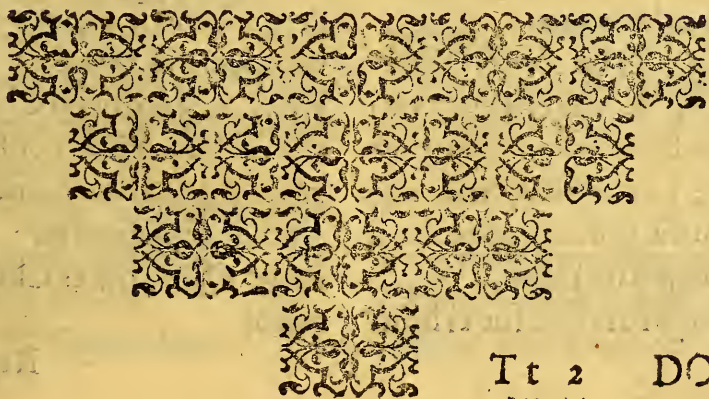 Tt 2 DO